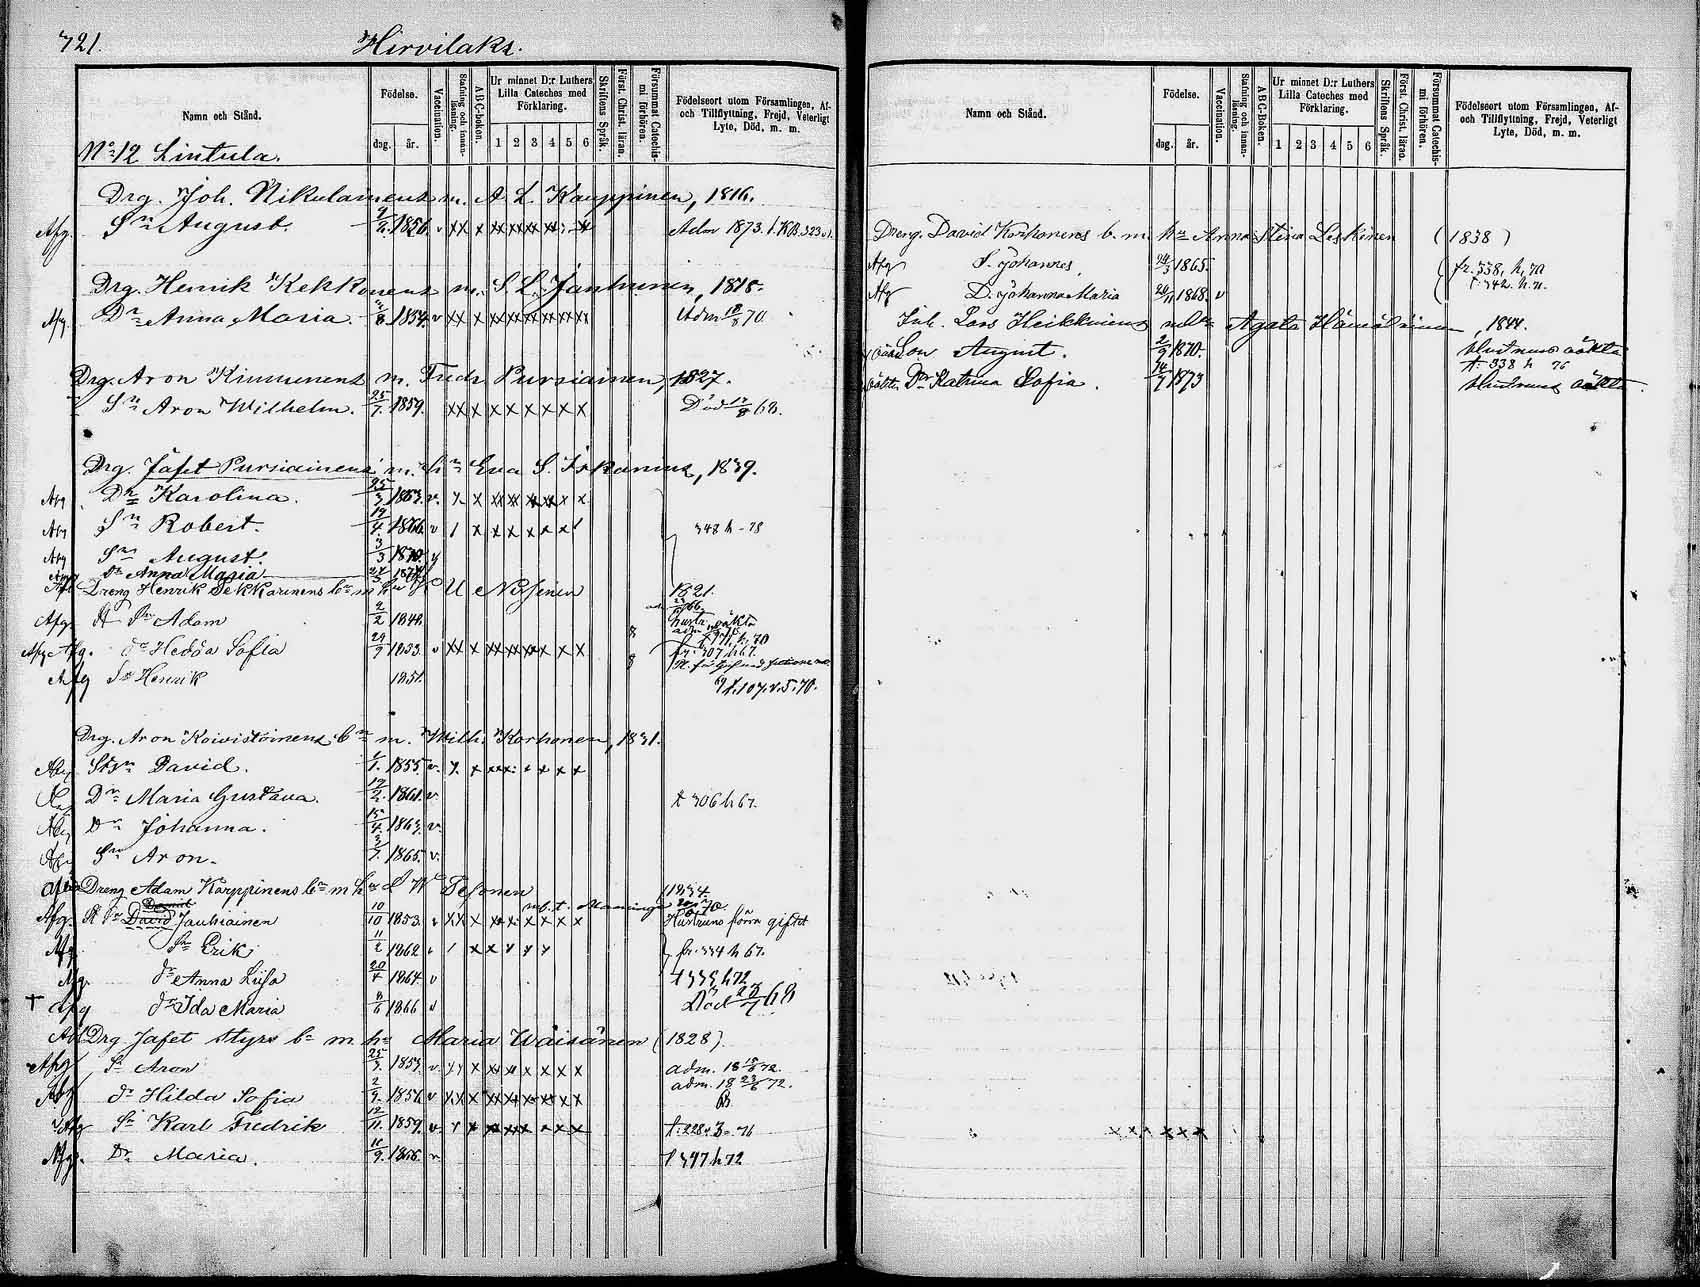 721.
Hirvilaks.
Namn och Stånd.
Födelse.
dag. år.
Vaccination.
Stafning och innan-läsning.
A B C-boken.
Ur minnet D:r Luthers Lilla Cateches med Förklaring.
1 2 3 4 5 6
Skriftens Språk.
Först. Christ. läran.
Försummat Catechis-mi förhören.
Födelseort utom Församlingen, Af- och Tillflyttning, Frejd, Veterligt Lyte, Död, m. m.
No 12 Lintula.
Drg. Joh. Nikulainens m. A. L. Kauppinen, 1816.
Afg. Sn August. 1856. v Adm 1873.
Drg. Henrik Kekkonens m. S. L. Janhunen, 1818.
Afg. Dr Anna Maria. 1854. v Adm 18/8 70.
Drg. Aron Kinnunens m. Fredr. Pursiainen, 1827.
Sn Aron Wilhelm. 25/7. 1859. Död 68.
Drg. Jafet Pursiainens m. hu Eva S. 1839.
Afg Dr Karolina. 25/3 1863. v.
Afg Sn Robert. 19/4. 1866. v 348 h - 78
Afg Sn August. 3/3 1870.
Dr Anna Maria
Dreng Henrik Pekkarinens bn m hu U Nosinen 1821.
Afg. Sn Adam 2/2 1848.
Afg. dr Hedda Sofia 29/9 1833. v fr. 307 h 67.
Afg Sn Henrik 1851. t. 107. v. 5. 70.
Drg. Aron Koivistoinens bn m. Wilh. Korhonen, 1831.
Afg David. 1/1. 1855. v.
Dr Maria Gustava. 19/2. 1861. v. t 306 h 67.
Dr Johanna. 15/4. 1863. v.
Sn Aron. 1865. v.
Dreng Adam Karppinens bn m hu L W Tesonen 1834.
Afg. David Jauhiainen 10/10 1853. v Hustruns förra giftet
Afg. Sn Erik 11/2 1862 fr. 334 h 67.
Afg. dr Anna Liisa 20/4 1864. v t 339 h 72
† Afg dr Ida Maria 8/6 1866 v Död 68
Drg Jafet Styrs bn m hu Maria Wäisänen (1828).
Afg S. Aron 25/3. 1853. v. adm. 18 15/6 72.
Afg dr Hilda Sofia 2/9. 1856. v adm. 18 23/6 72.
Afg Sn Karl Fredrik 12/11. 1859. v. t. 228 v 3. 76
Afg. Dr Maria. 10/9. 1866. v. t 347 h 72
Namn och Stånd.
Födelse.
dag. år.
Vaccination.
Stafning och innan-läsning.
A B C-Boken.
Ur minnet D:r Luthers Lilla Cateches med Förklaring.
1 2 3 4 5 6
Skriftens Språk.
Först. Christ. läran.
Försummat Catechis-mi förhören.
Födelseort utom Församlingen, Af- och Tillflyttning, Frejd, Veterligt Lyte, Död, m. m.
Dreng. David Korhonens b. m. hu Anna Stina Leskinen (1838)
Afg S. Johannes. 24/3 1865. fr. 338, h, 70
Afg D. Johanna Maria 20/11 1868. v t. 342. h. 71.
Inh. Lars Heikkinens Agata Hämäläinen, 1844.
Son August. 2/9 1870. Hustruns oäkta
t. 338 h 76
oäkta Dr Katrina Sofia. 14/7 1873 Hustruns oäkta